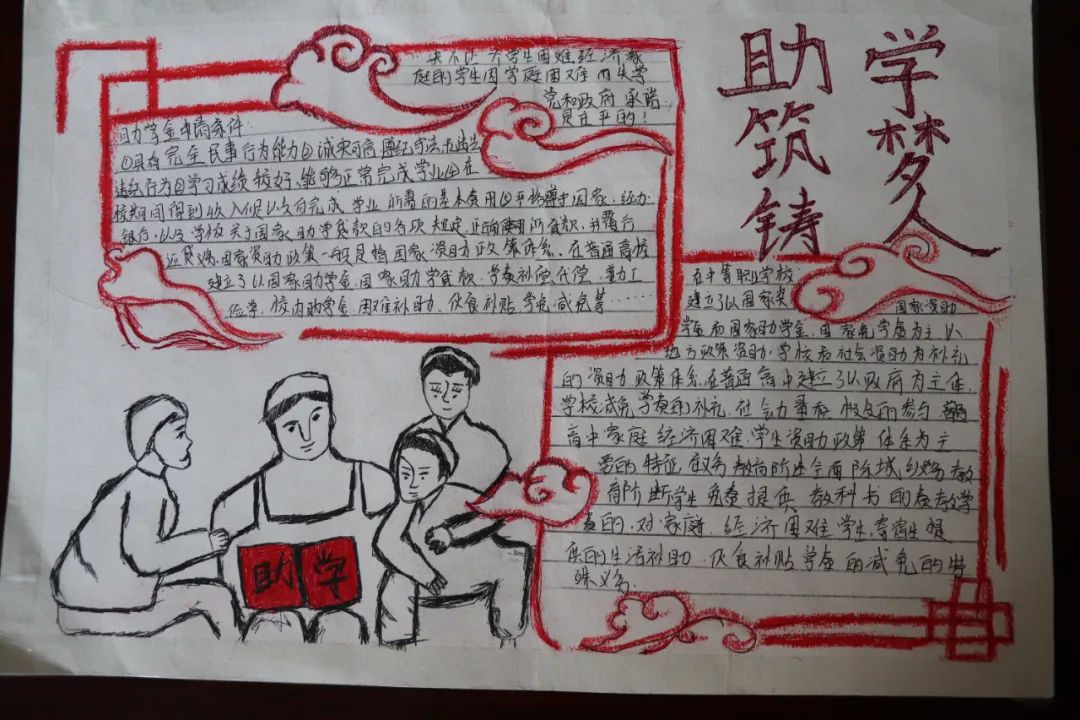 助学
筑梦
铸人
决不让一个学生因难经济家
庭的学生因家庭困难而失学
党和政府承诺
是庄平的！
目力学金申请条件：
①具有完全民事行为能力②诚实守信遵纪守法无违法
违纪行为③学习成绩较好，能够正常完成学业④在
校期间得到收入但以支付完成学业所需的基本费用⑤
国家，经办
银行，以及学校关于国家助学贷款的各项规定，正确使用所有款，并履行
还贷义务，国家资助政策一般是指国家资助政策体系，在普通高校
建立了以国家助学金，国家助学贷款，学费补偿代偿，勤工
俭学，校内助学金，困难补助，伙食补贴，学免减免等……
在中等职业学校
建立了以国家奖
国家资助
学金和国家助学金，国家免学费为主，以
地方政策资助，学校和社会资助为补充
的资助政策体系，在普通高中建立了以政府为主体，
学校减免学费的补充，社会力量积极的参与，普通
高中家庭经济困难，学生资助政策体系为主
要的特征，义务教育阶段全面阶城乡义务教
育阶断学生免费提供教科书的费教学
的，对家庭经济困难学生，寄宿生提
供的生活补助，伙食补贴学费的减免的特
殊义务
助学